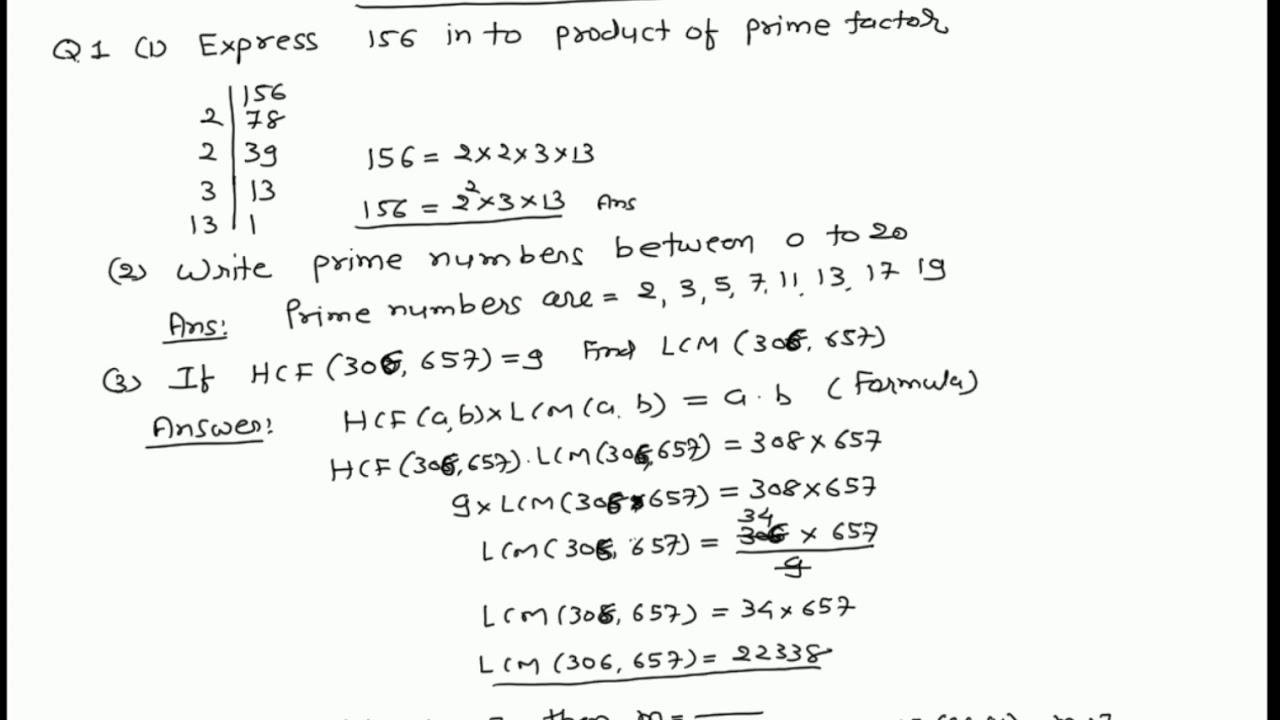 Q1 (1) Express 156 in to product of prime factor
156
2 78
2 39 156 = 2×2×3×13
3 13 156 = 2²×3×13 Ans
13 1
(2) Write prime numbers between 0 to 20
Ans: Prime numbers are = 2, 3, 5, 7, 11, 13, 17 19
(3) If HCF (306, 657) = 9 Find LCM (306, 657)
Answer: HCF(a,b)×LCM(a, b) = a.b (Formula)
HCF(306,657).LCM(306,657) = 308×657
9×LCM(306×657) = 308×657
34
LCM(306, 657) = 306 × 657
9
LCM(306, 657) = 34×657
LCM (306, 657) = 22338
then m =